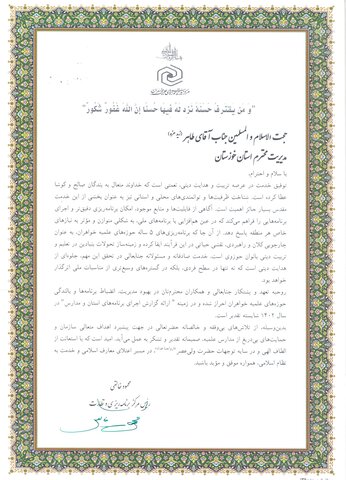 وَ مَنْ یَقْتَرِفْ حَسَنَةً نَزِدْ لَهُ فِیهَا حُسْنًا إِنَّ اللَّهَ غَفُورٌ شَکُورٌ"
حجت الاسلام و المسلمین جناب آقای طاهر (زید عزه)
مدیریت محترم استان خوزستان
با سلام و احترام،
توفیق خدمت در عرصه تربیت و هدایت دینی، نعمتی است که خداوند متعال به بندگان صالح و کوشا
عطا کرده است. شناخت ظرفیت‌ها و توانمندی‌های محلی و استانی نیز به عنوان بخشی از این خدمت
مقدس بسیار حائز اهمیت است. آگاهی از قابلیت‌ها و منابع موجود، امکان برنامه‌ریزی دقیق‌تر و اجرای
برنامه‌هایی را فراهم می‌کند که در عین هم‌افزایی با برنامه‌های ملی، به شکلی متوازن و مؤثر به نیازهای
خاص هر منطقه پاسخ دهد. از آن جا که برنامه‌ریزی‌های ۵ ساله حوزه‌های علمیه خواهران، به عنوان
چارچوبی کلان و راهبردی، نقشی حیاتی در این فرآیند ایفا کرده و زمینه‌ساز تحولات بنیادین در تعلیم و
تربیت بانوان حوزوی است. خدمت صادقانه و مسئولانه جنابعالی در تحقق این مهم، جلوه‌ای از
هدایت دینی است که نه تنها در سطح فردی، بلکه در گستره‌های وسیع‌تری از مناسبات ملی اثرگذار
خواهد بود.
روحیه تعهد و پشتکار جنابعالی و همکاران محترمتان در بهبود مدیریت، انضباط برنامه‌ها و بالندگی
حوزه‌های علمیه خواهران احراز شده و در زمینه " ارائه گزارش اجرای برنامه‌های استان و مدارس " در
سال ۱۴۰۲ شایسته تقدیر است.
بدین‌وسیله، از تلاش‌های بی‌وقفه و خالصانه حضرتعالی در جهت پیشبرد اهداف متعالی سازمان و
حمایت‌های بی‌دریغ از مدارس علمیه، صمیمانه تقدیر و تشکر به عمل می‌آید. امید است که با استعانت از
الطاف الهی و در سایه توجهات حضرت ولی‌عصر در مسیر اعتلای معارف اسلامی و خدمت به
نظام اسلامی، همواره موفق و مؤید باشید.
محمود خالقی
رئیس مرکز برنامه‌ریزی و نظارت